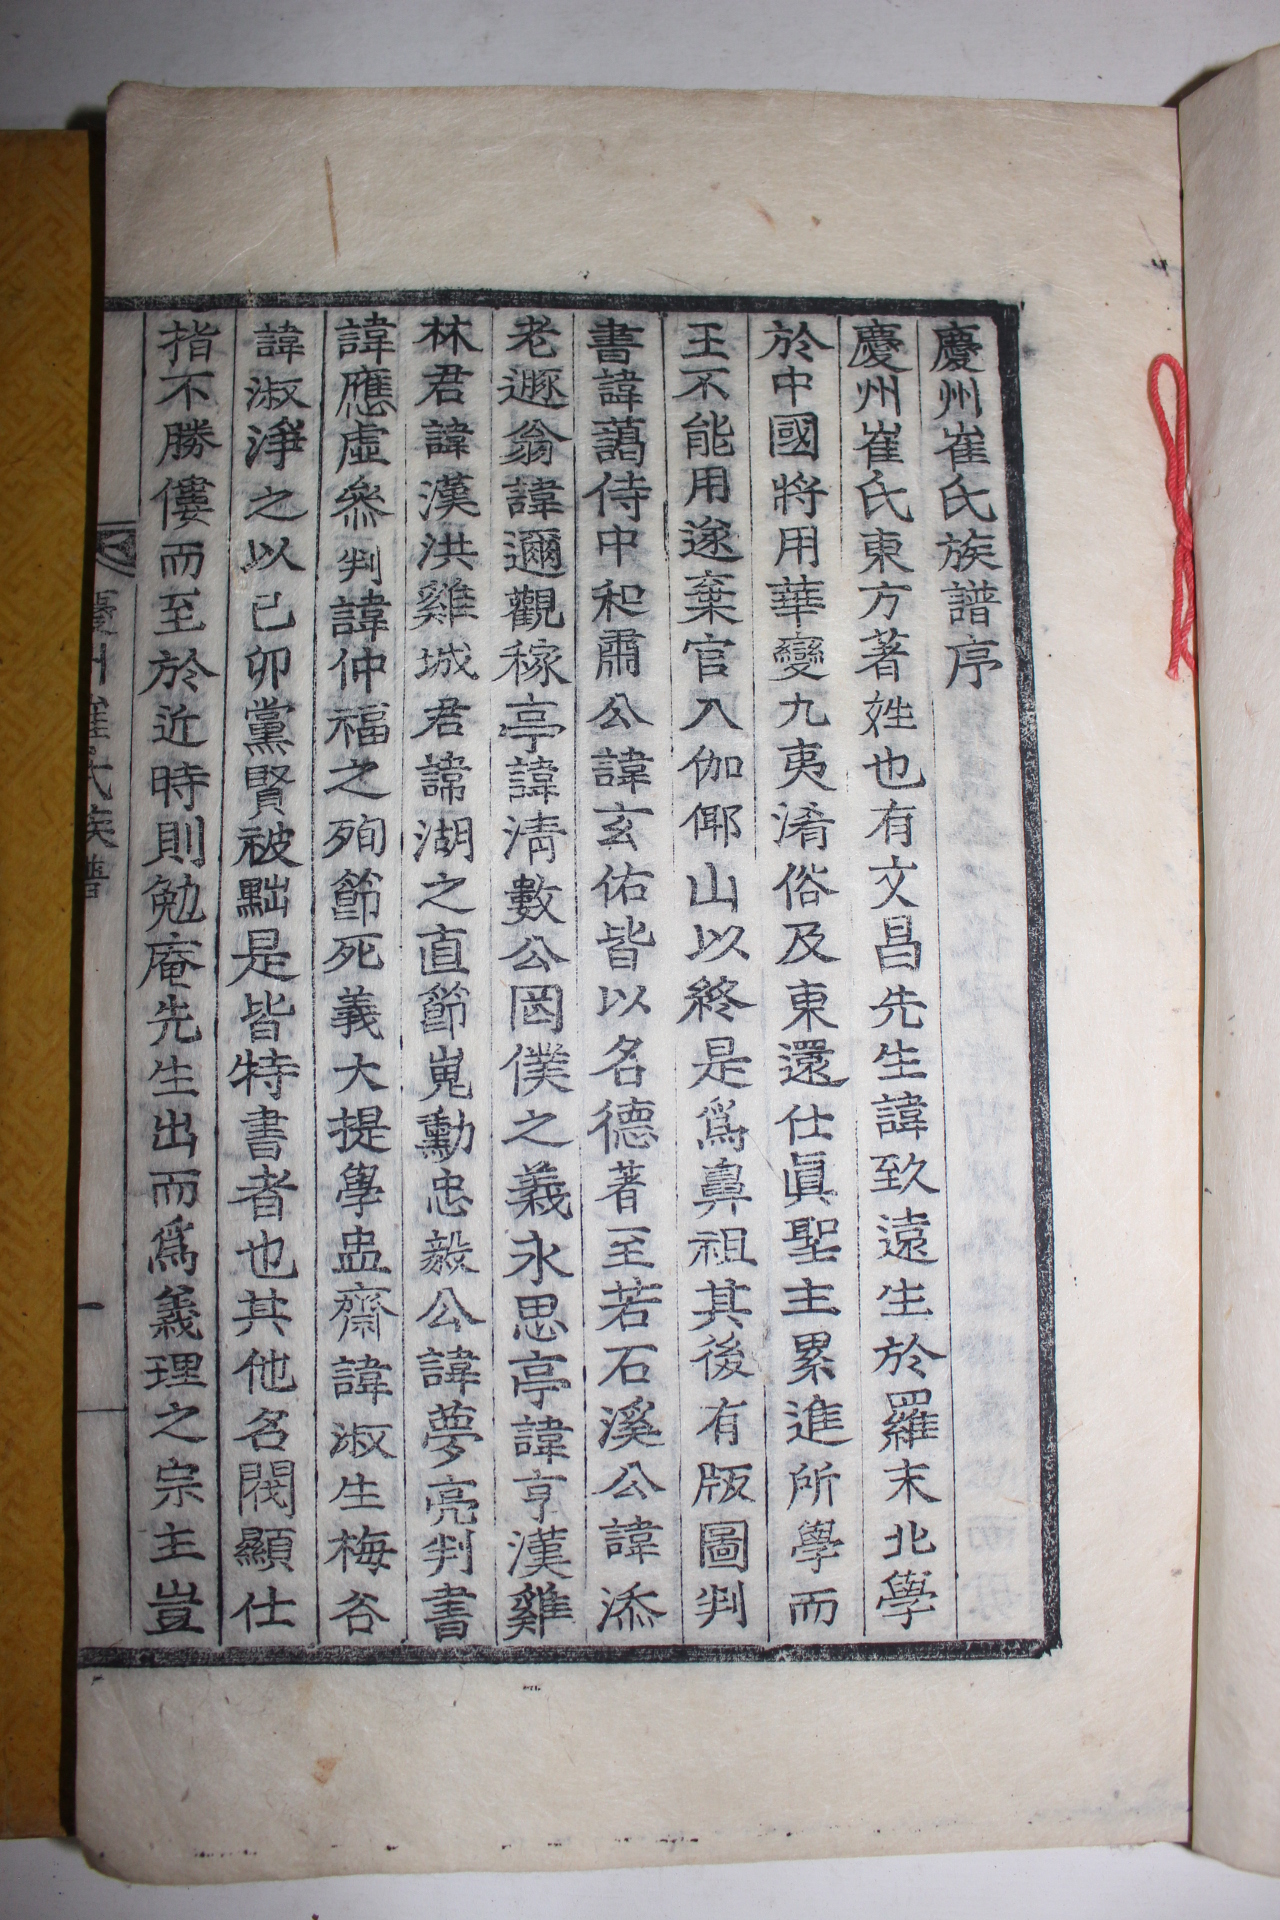 慶州崔氏族譜序
慶州崔氏東方著姓也有文昌先生諱致遠生於羅末北學
於中國將用華變九夷淆俗及東還仕眞聖主累進所學而
王不能用遂棄官入伽倻山以終是爲鼻祖其後有版圖判
書諱藹侍中和肅公諱玄佑皆以名德著至若石溪公諱添
老遯翁諱邇觀稼亭諱淸數公罔僕之義永思亭諱亨漢雞
林君諱漢洪雞城君諱湖之直節嵬勳忠毅公諱夢亮判書
諱應虛叅判諱仲福之殉節死義大提學盅齋諱淑生梅谷
諱淑淨之以己卯黨賢被黜是皆特書者也其他名閥顯仕
指不勝僂而至於近時則勉庵先生出而爲義理之宗主豈
慶州崔氏族譜
一